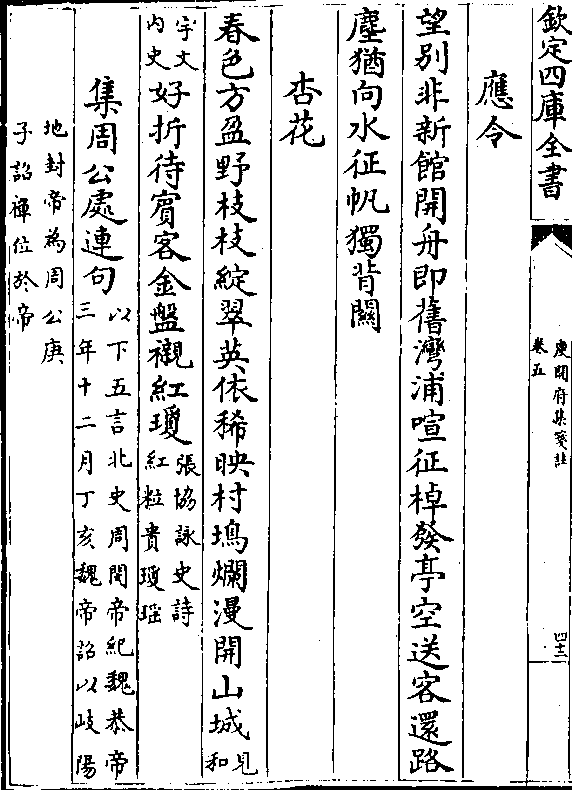 欽定四庫全書
庾開府集箋註
卷五
四十三
應令
望别非新館開舟即舊灣浦喧征棹發亭空送客還路
塵猶向水征帆獨背關
杏花
春色方盈野枝枝綻翠英依稀映村塢爛漫開山城見和
宇文内史好折待賓客金盤襯紅瓊張協詠史詩紅粒貴瓊瑶
集周公處連句以下五言北史周閔帝紀魏恭帝三年十二月丁亥魏帝詔以岐陽
地封帝為周公庚子詔禪位於帝